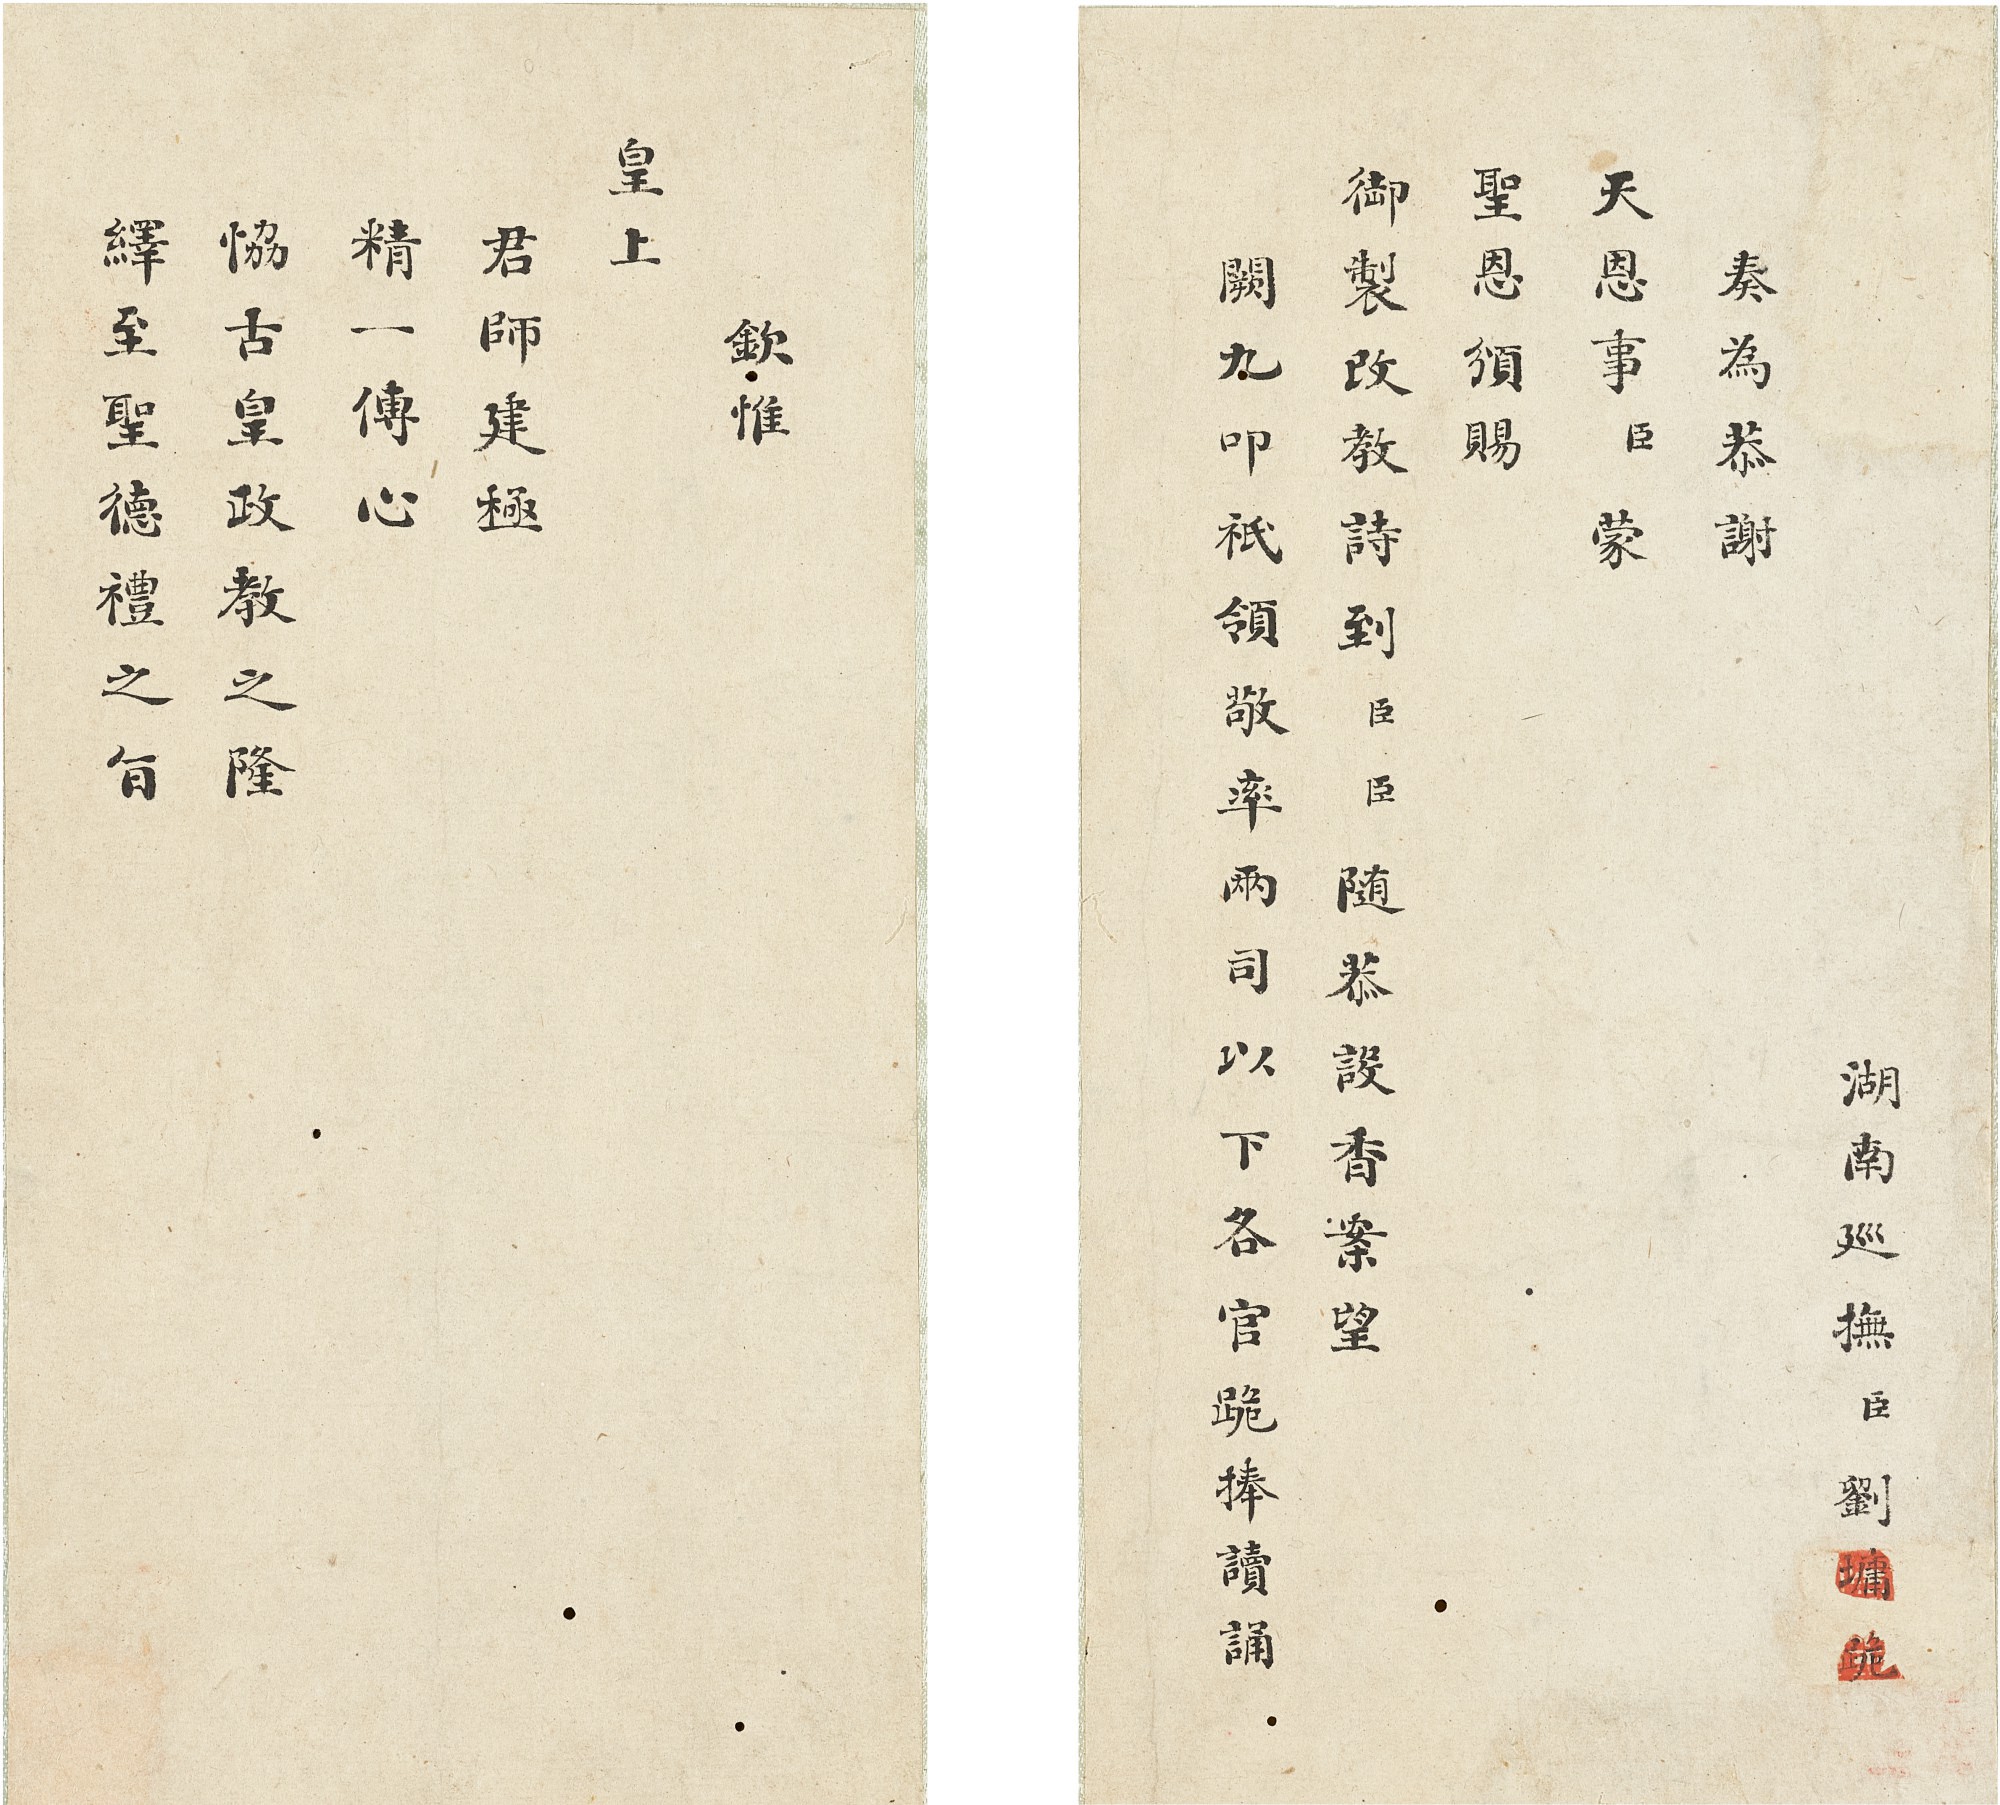 湖南巡撫臣劉墉跪
奏為恭謝
天恩事臣蒙
聖恩頒賜
御製改教詩到臣臣隨恭設香案望
闕九叩祗領敬率兩司以下各官跪捧讀誦
欽惟
皇上
君師建極
精一傳心
恊古皇政教之隆
繹至聖德禮之旨